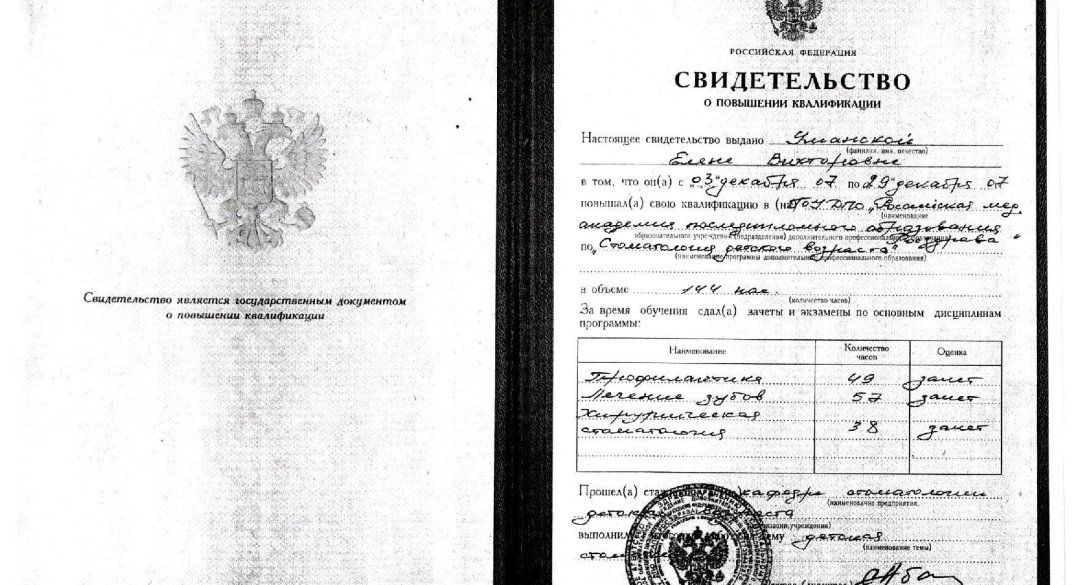 Свидетельство является государственным документом
о повышении квалификации
РОССИЙСКАЯ ФЕДЕРАЦИЯ
СВИДЕТЕЛЬСТВО
О ПОВЫШЕНИИ КВАЛИФИКАЦИИ
Настоящее свидетельство выдано Уманской
(фамилия, имя, отчество)
Елене Викторовне
в том, что он(а) с „03" декабря 07 по „29" декабря 07
повышал(а) свою квалификацию в (на) ГОУ ДПО „Российская мед.
(наименование
академия последипломного образования
образовательного учреждения (подразделения) дополнительного профессионального
Росздрава"
по „Стоматология детского возраста"
(наименование программы дополнительного профессионального образования)
в объеме 144 час.
(количество часов)
За время обучения сдал(а) зачеты и экзамены по основным дисциплинам
программы:
Наименование Количество часов Оценка
Профилактика 49 зачет
Лечение зубов 57 зачет
Хирургическая
стоматология 38 зачет
Прошел(а) кафедре стоматологии
(наименование предприятия,
детского
учреждения)
выполнил тему детская
(наименование темы)